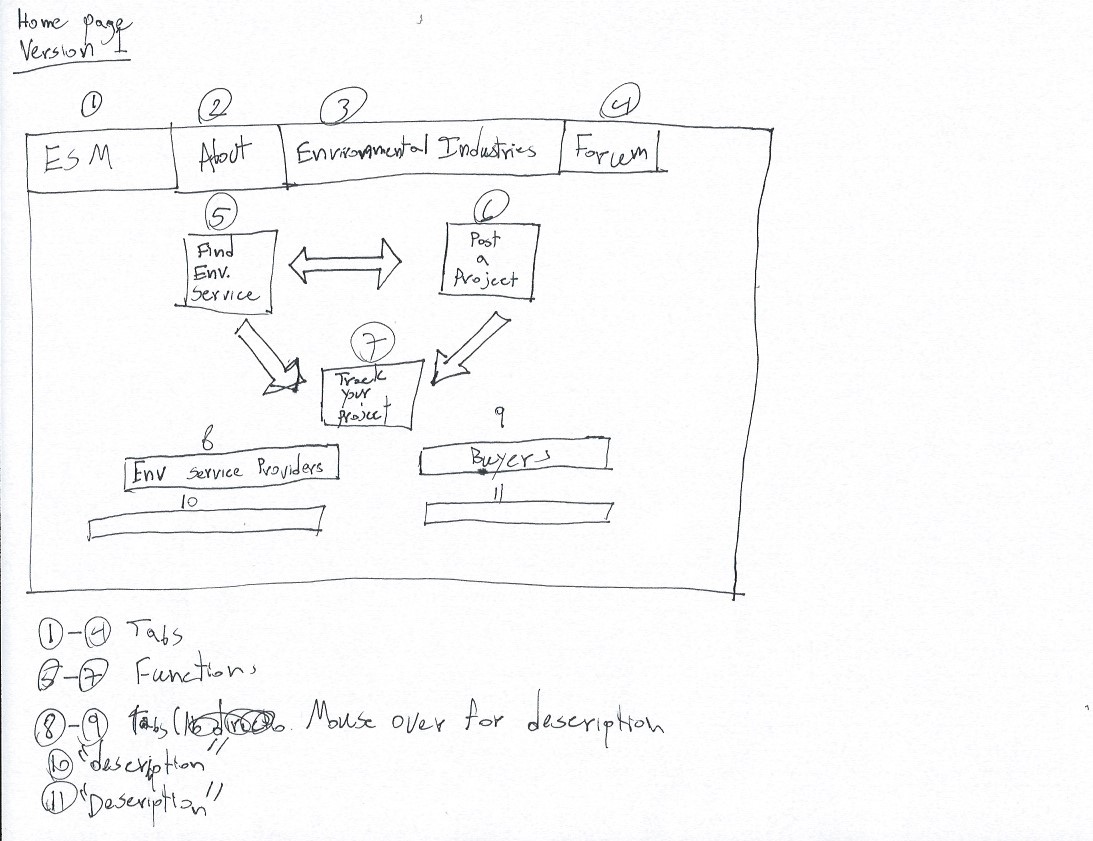 Home page
Version 1
1 2 3 4
ESM About Environmental Industries Forum
5 6
Find
Env.
Service
Post
a
Project
7
Track
your
project
8 9
Env Service Providers Buyers
10 11
1-4 Tabs
5-7 Functions
8-9 Tabs ( Mouse over for description
10 "description"
11 "Description"